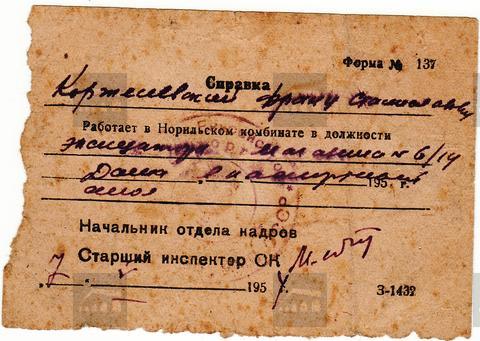 Форма № 137
Справка
Коржелевский Франц Станиславович
Работает в Норильском комбинате в должности
экспедитор магазина № 6/14
Дана
195 г.
Начальник отдела кадров
Старший инспектор ОК
7 V 1954 г.
З-1432